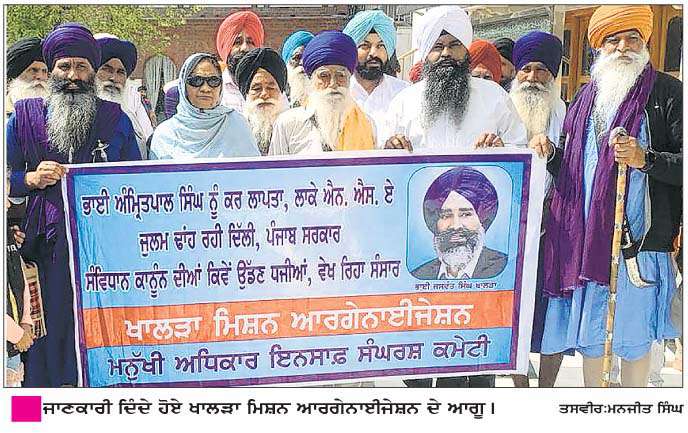 ਭਾਈ ਅੰਮ੍ਰਿਤਪਾਲ ਸਿੰਘ ਨੂੰ ਕਰ ਲਾਪਤਾ, ਲਾਕੇ ਐਨ. ਐਸ. ਏ
ਜੁਲਮ ਢਾਂਹ ਰਹੀ ਦਿੱਲੀ, ਪੰਜਾਬ ਸਰਕਾਰ
ਸੰਵਿਧਾਨ ਕਾਨੂੰਨ ਦੀਆਂ ਕਿਵੇਂ ਉੱਡਣ ਧਜੀਆਂ, ਵੇਖ ਰਿਹਾ ਸੰਸਾਰ
ਭਾਈ ਜਸਵੰਤ ਸਿੰਘ ਖਾਲੜਾ
ਖਾਲੜਾ ਮਿਸ਼ਨ ਆਰਗੇਨਾਈਜੇਸ਼ਨ
ਮਨੁੱਖੀ ਅਧਿਕਾਰ ਇਨਸਾਫ਼ ਸੰਘਰਸ਼ ਕਮੇਟੀ
ਜਾਣਕਾਰੀ ਦਿੰਦੇ ਹੋਏ ਖਾਲੜਾ ਮਿਸ਼ਨ ਆਰਗੇਨਾਈਜੇਸ਼ਨ ਦੇ ਆਗੂ। ਤਸਵੀਰ:ਮਨਜੀਤ ਸਿੰਘ